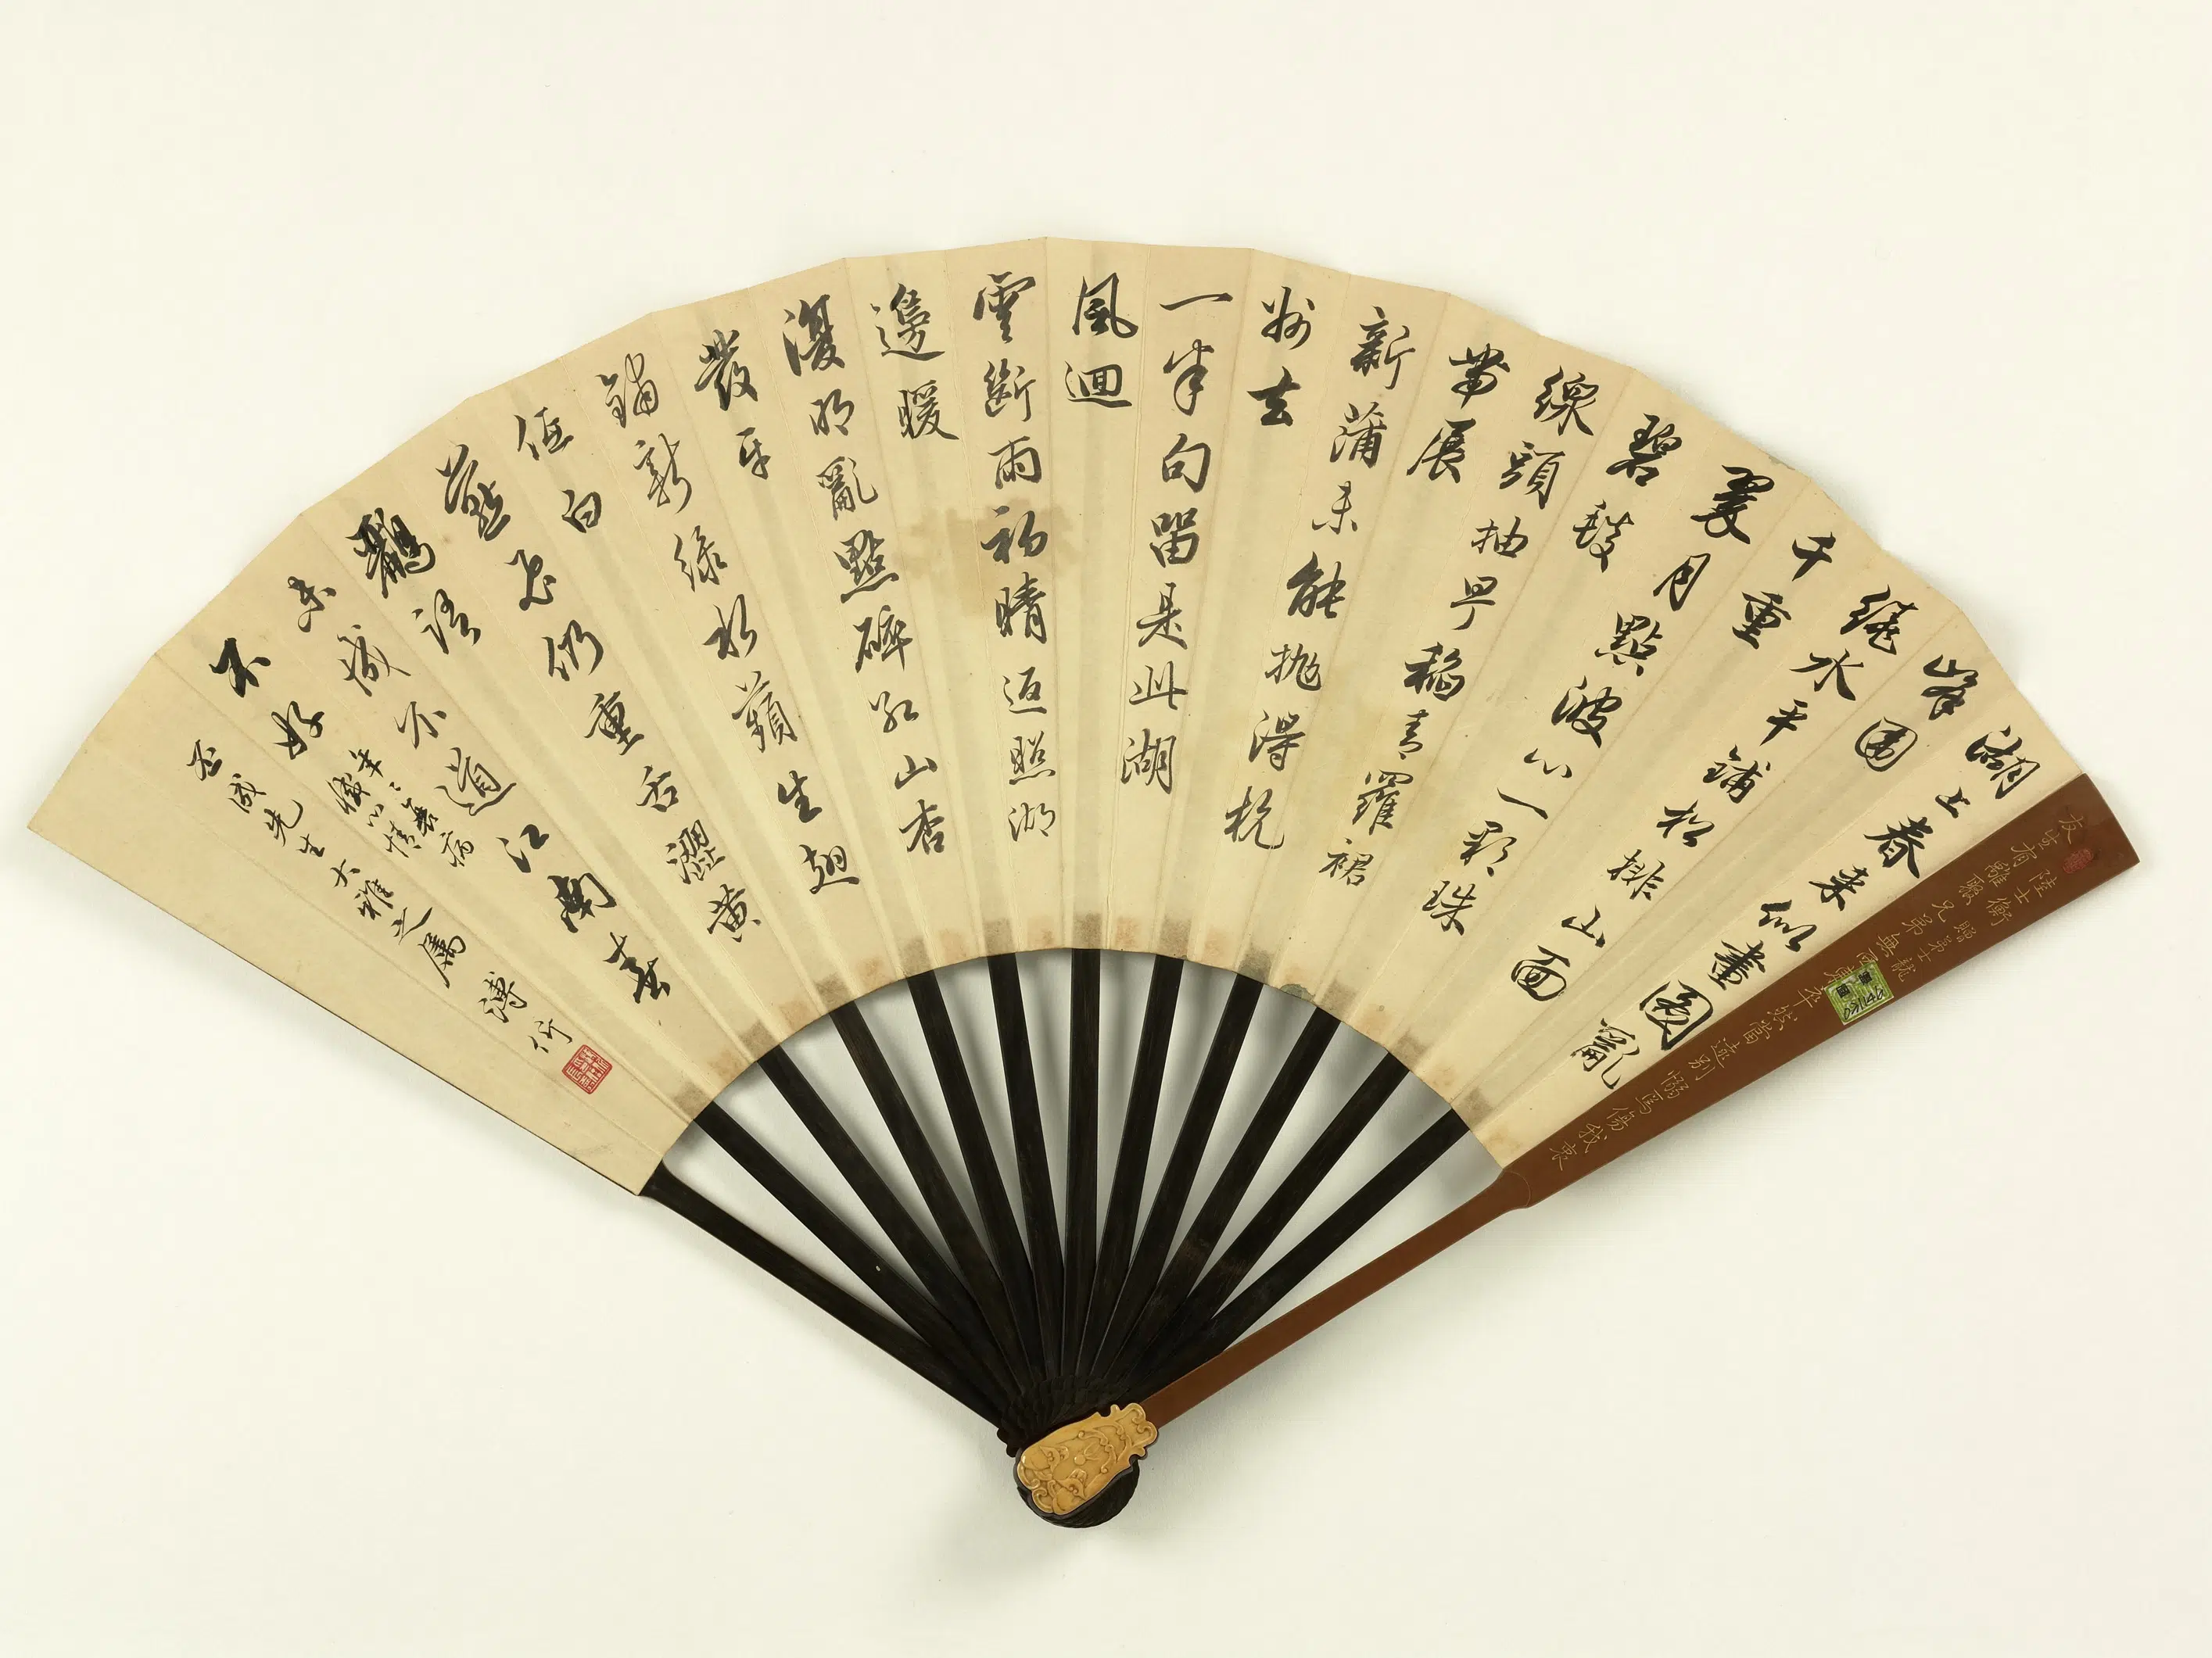 湖上春來似畫圖亂
峯圍
繞水平鋪松排山面
千重
翠月點波心一顆珠
碧毯
線頭抽早稻青羅裙
帶展
新蒲未能拋得杭
州去
一半句留是此湖
風迴
雲斷雨初晴返照湖
邊暖
復明亂點碎紅山杏
發平
鋪新綠水蘋生翅
低白
鴈飛仍重舌澀黃
鸝語
未成不道江南春
不好
年年衰病
減心情
成先生大雅之屬 溥伒
陸士衡贈弟士龍
友皆有離聚兄弟無同 卒然當遠別惄焉傷我衷